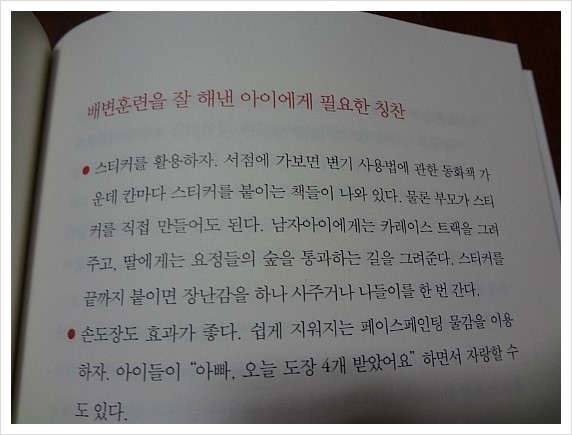 배변훈련을 잘 해낸 아이에게 필요한 칭찬
● 스티커를 활용하자. 서점에 가보면 변기 사용법에 관한 동화책 가
운데 칸마다 스티커를 붙이는 책들이 나와 있다. 물론 부모가 스티
커를 직접 만들어도 된다. 남자아이에게는 카레이스 트랙을 그려
주고, 딸에게는 요정들의 숲을 통과하는 길을 그려준다. 스티커를
끝까지 붙이면 장난감을 하나 사주거나 나들이를 한 번 간다.
● 손도장도 효과가 좋다. 쉽게 지워지는 페이스페인팅 물감을 이용
하자. 아이들이 “아빠, 오늘 도장 4개 받았어요” 하면서 자랑할 수
도 있다.